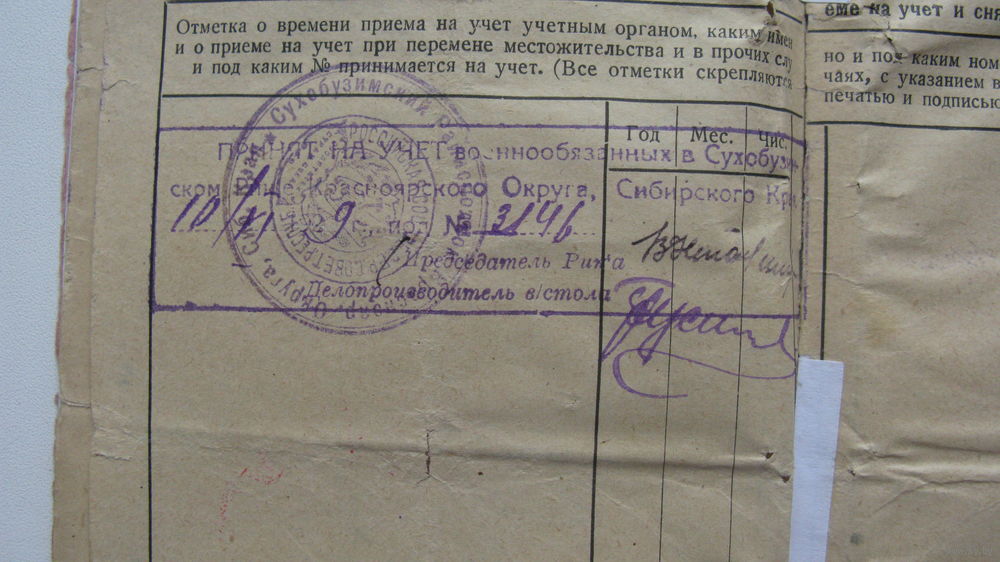 Отметка о времени приема на учет учетным органом, каким имен
и о приеме на учет при перемене местожительства и в прочих слу
и под каким № принимается на учет. (Все отметки скрепляются
еме на учет и сня
но и под каким ном
чаях, с указанием в
печатью и подписью
Год Мес. Чис.
ПРИНЯТ НА УЧЕТ военнообязанных в Сухобузим
ском Красноярского Округа, Сибирского Края
10/XI 9 г. под № 3146
Председатель Рика
Делопроизводитель в/стола
Сухобузимский Район
Округа, Сиб. Края